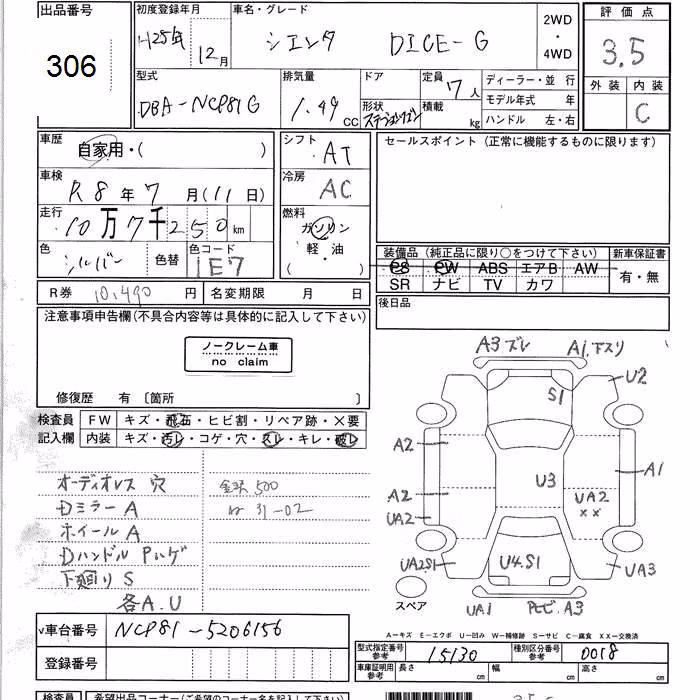 出品番号
306
初度登録年月
H25年 12月
車名・グレード
シエンタ DICE-G
2WD
・
4WD
評価点
3.5
外装 内装
C
型式
DBA-NCP81G
排気量
1.49 CC
ドア
形状 ステーションワゴン
定員 7人
積載 kg
ディーラー・並行
モデル年式 年
ハンドル 左・右
車歴
自家用・( )
シフト
AT
車検
R8年7月(11日)
冷房
AC
走行
10万7千250km
燃料
ガソリン
軽・油
( )
色
シルバー
色替
色コード
1E7
セールスポイント(正常に機能するものに限ります)
装備品(純正品に限り○をつけて下さい)
PS PW ABS エアB AW
SR ナビ TV カワ
新車保証書
有・無
R券 10,490円
名変期限 月 日
後日品
注意事項申告欄(不具合内容等は具体的に記入して下さい)
ノークレーム車
no claim
修復歴 有〔箇所 〕
検査員
記入欄
FW キズ・飛石・ヒビ割・リペア跡・×要
内装 キズ・汚レ・コゲ・穴・スレ・キレ・破レ
オーディオレス 穴
DミラーA
ホイールA
DハンドルPハゲ
下廻りS
各A.U
500
31-02
A3ズレ
A1.下スリ
U2
S1
A2
U3
A1
A2
UA2
××
UA2
UA2S1
U4.S1
UA3
スペア
UA1
A3
A-キズ E-エクボ U-凹み W-補修跡 S-サビ C-腐食 XX-交換済
v車台番号
NCP81-5206156
登録番号
型式指定番号
参考
15130
種別区分番号
参考
0018
車庫証明用
参考
長さ cm
幅 cm
高さ cm
検査員
希望出品コーナー(ご希望のコーナー名を記入下さい)